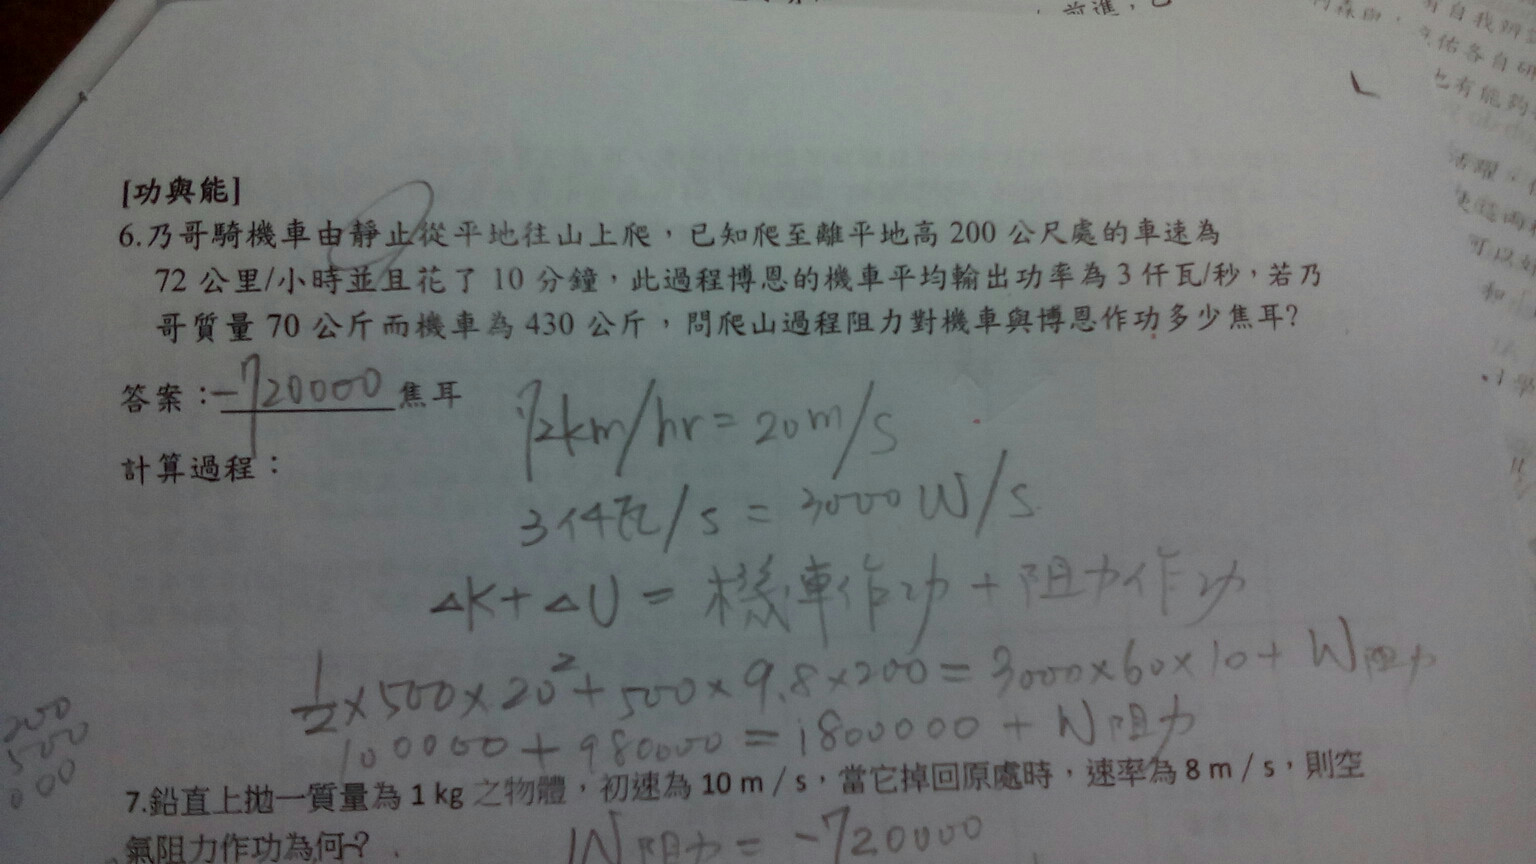 前進，已
[功與能]
6.乃哥騎機車由靜止從平地往山上爬，已知爬至離平地高 200 公尺處的車速為
72 公里/小時並且花了 10 分鐘，此過程博恩的機車平均輸出功率為 3 仟瓦/秒，若乃
哥質量 70 公斤而機車為 430 公斤，問爬山過程阻力對機車與博恩作功多少焦耳?
答案：-720000 焦耳
72km/hr = 20m/s
計算過程：
3仟瓦/s = 3000 W/s
△K + △U = 機車作功 + 阻力作功
1/2 × 500 × 20² + 500 × 9.8 × 200 = 3000 × 60 × 10 + W阻力
100000 + 980000 = 1800000 + W阻力
7.鉛直上拋一質量為 1 kg 之物體，初速為 10 m / s，當它掉回原處時，速率為 8 m / s，則空
氣阻力作功為何?
W阻力 = -720000
200
500
000
自我辨
佑各自研
也有能夠
活躍，
可以
和